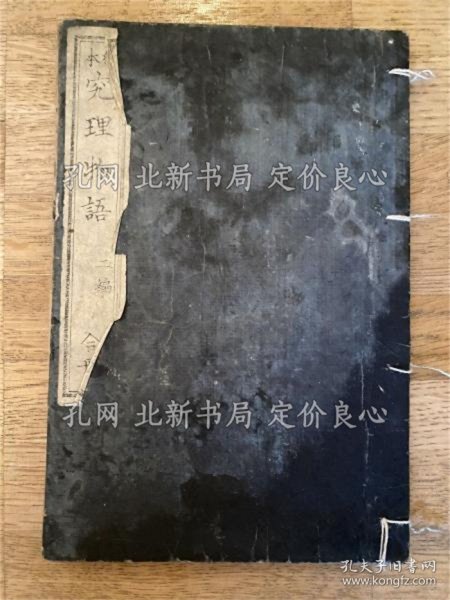 本
究理物語
二編
合
孔网 北新书局 定价良心
孔网 北新书局 定价良心
孔夫子旧书网
www.kongfz.com